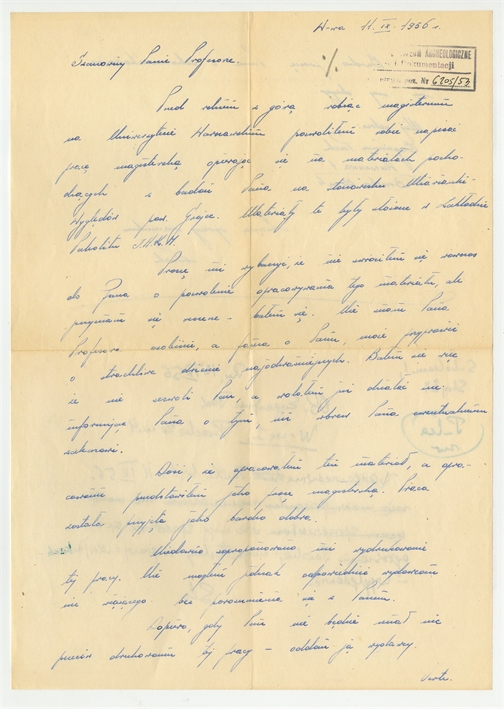 W-wa 11.IX.1956 r.
ARCHEOLOGICZNE
Dokumentacji
Nr 6205/53
Szanowny Panie Profesorze.
Przed rokiem z górą robiąc magisterium
na Uniwersytecie Warszawskim pozwoliłem sobie napisać
pracę magisterską opierając się na materiałach pocho-
dzących z badań Pana na stanowisku Miazanki-
pow. Grójec. Materiały te były złożone w Zakładzie
I.H.K.M.
Proszę mi wybaczyć, że nie zwróciłem się
do Pana o pozwolenie opracowywania tego materiału, ale
przyznam się szczerze - bałem się. Nie znam Pana
Profesora osobiście, a fama o Panu, może przyprawić
o drżenie najodważniejszych. Bałem się więc
że nie zezwoli Pan, a wolałem już działać nie
informując Pana o tym, niż wbrew Pana ewentualnemu
Dość, że opracowałem ten materiał, a opra-
cowanie przedstawiłem jako pracę magisterską. Praca
została przyjęta jako bardzo dobra.
Niedawno zaproponowano mi wydrukowanie
tej pracy. Nie mogłem jednak odpowiedzieć wydawcom
nic wiążącego bez porozumienia się z Panem.
Dopiero, gdy Pan nie będzie miał nic
przeciw drukowaniu tej pracy - oddam ją wydawcy.
Verte.